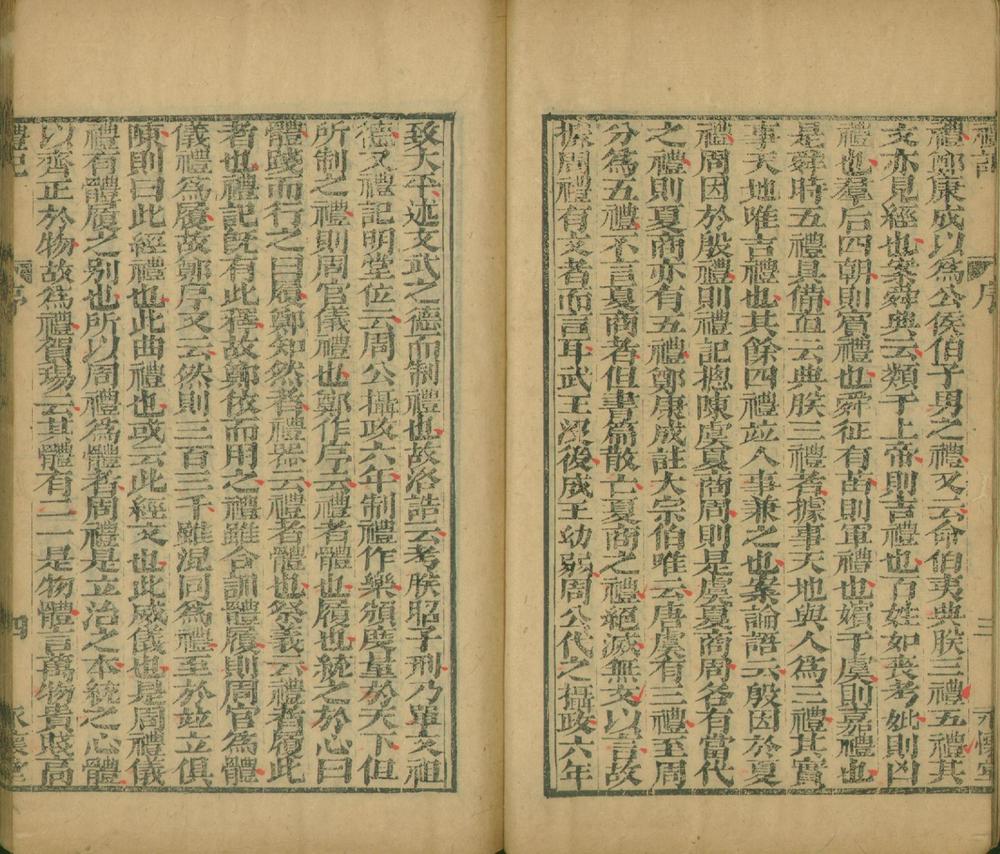 禮鄭康成以為公侯伯子男之禮又云命伯夷典朕三禮五禮其
文亦見經也案舜典云類于上帝則吉禮也百姓如喪考妣則凶
禮也羣后四朝則賓禮也舜征有苗則軍禮也嬪于虞則嘉禮也
是舜時五禮具備直云典朕三禮者據事天地與人為三禮其實
事天地唯吉禮也其餘四禮並人事兼之也案論語云殷因於夏
禮周因於殷禮則禮記揔陳虞夏商周則是虞夏商周各有當代
之禮則夏商亦有五禮鄭康成註大宗伯唯云唐虞有三禮至周
分為五禮不言夏商者但書篇散亡夏商之禮絕滅無文以言故
據周禮有文者而言耳武王沒後成王幼弱周公代之攝政六年
致大平述文武之德而制禮也故洛誥云考朕昭子刑乃單文祖
德又禮記明堂位云周公攝政六年制禮作樂頒度量於天下但
所制之禮則周官儀禮也鄭作序云禮者體也履也統之於心曰
體踐而行之曰履鄭知然者禮器云禮者體也祭義云禮者履此
者也禮記既有此釋故鄭依而用之禮雖合訓體履則周官為體
儀禮為履故鄭序又云然則三百三千雖混同為禮至於並立俱
陳則曰此經禮也此曲禮也或云此經文也此威儀也是周禮儀
禮有體履之别也所以周禮為體者周禮是立治之本統之心體
以齊正於物故為禮賀瑒云其體有二一是物體言萬物貴賤高
禮記
序
四